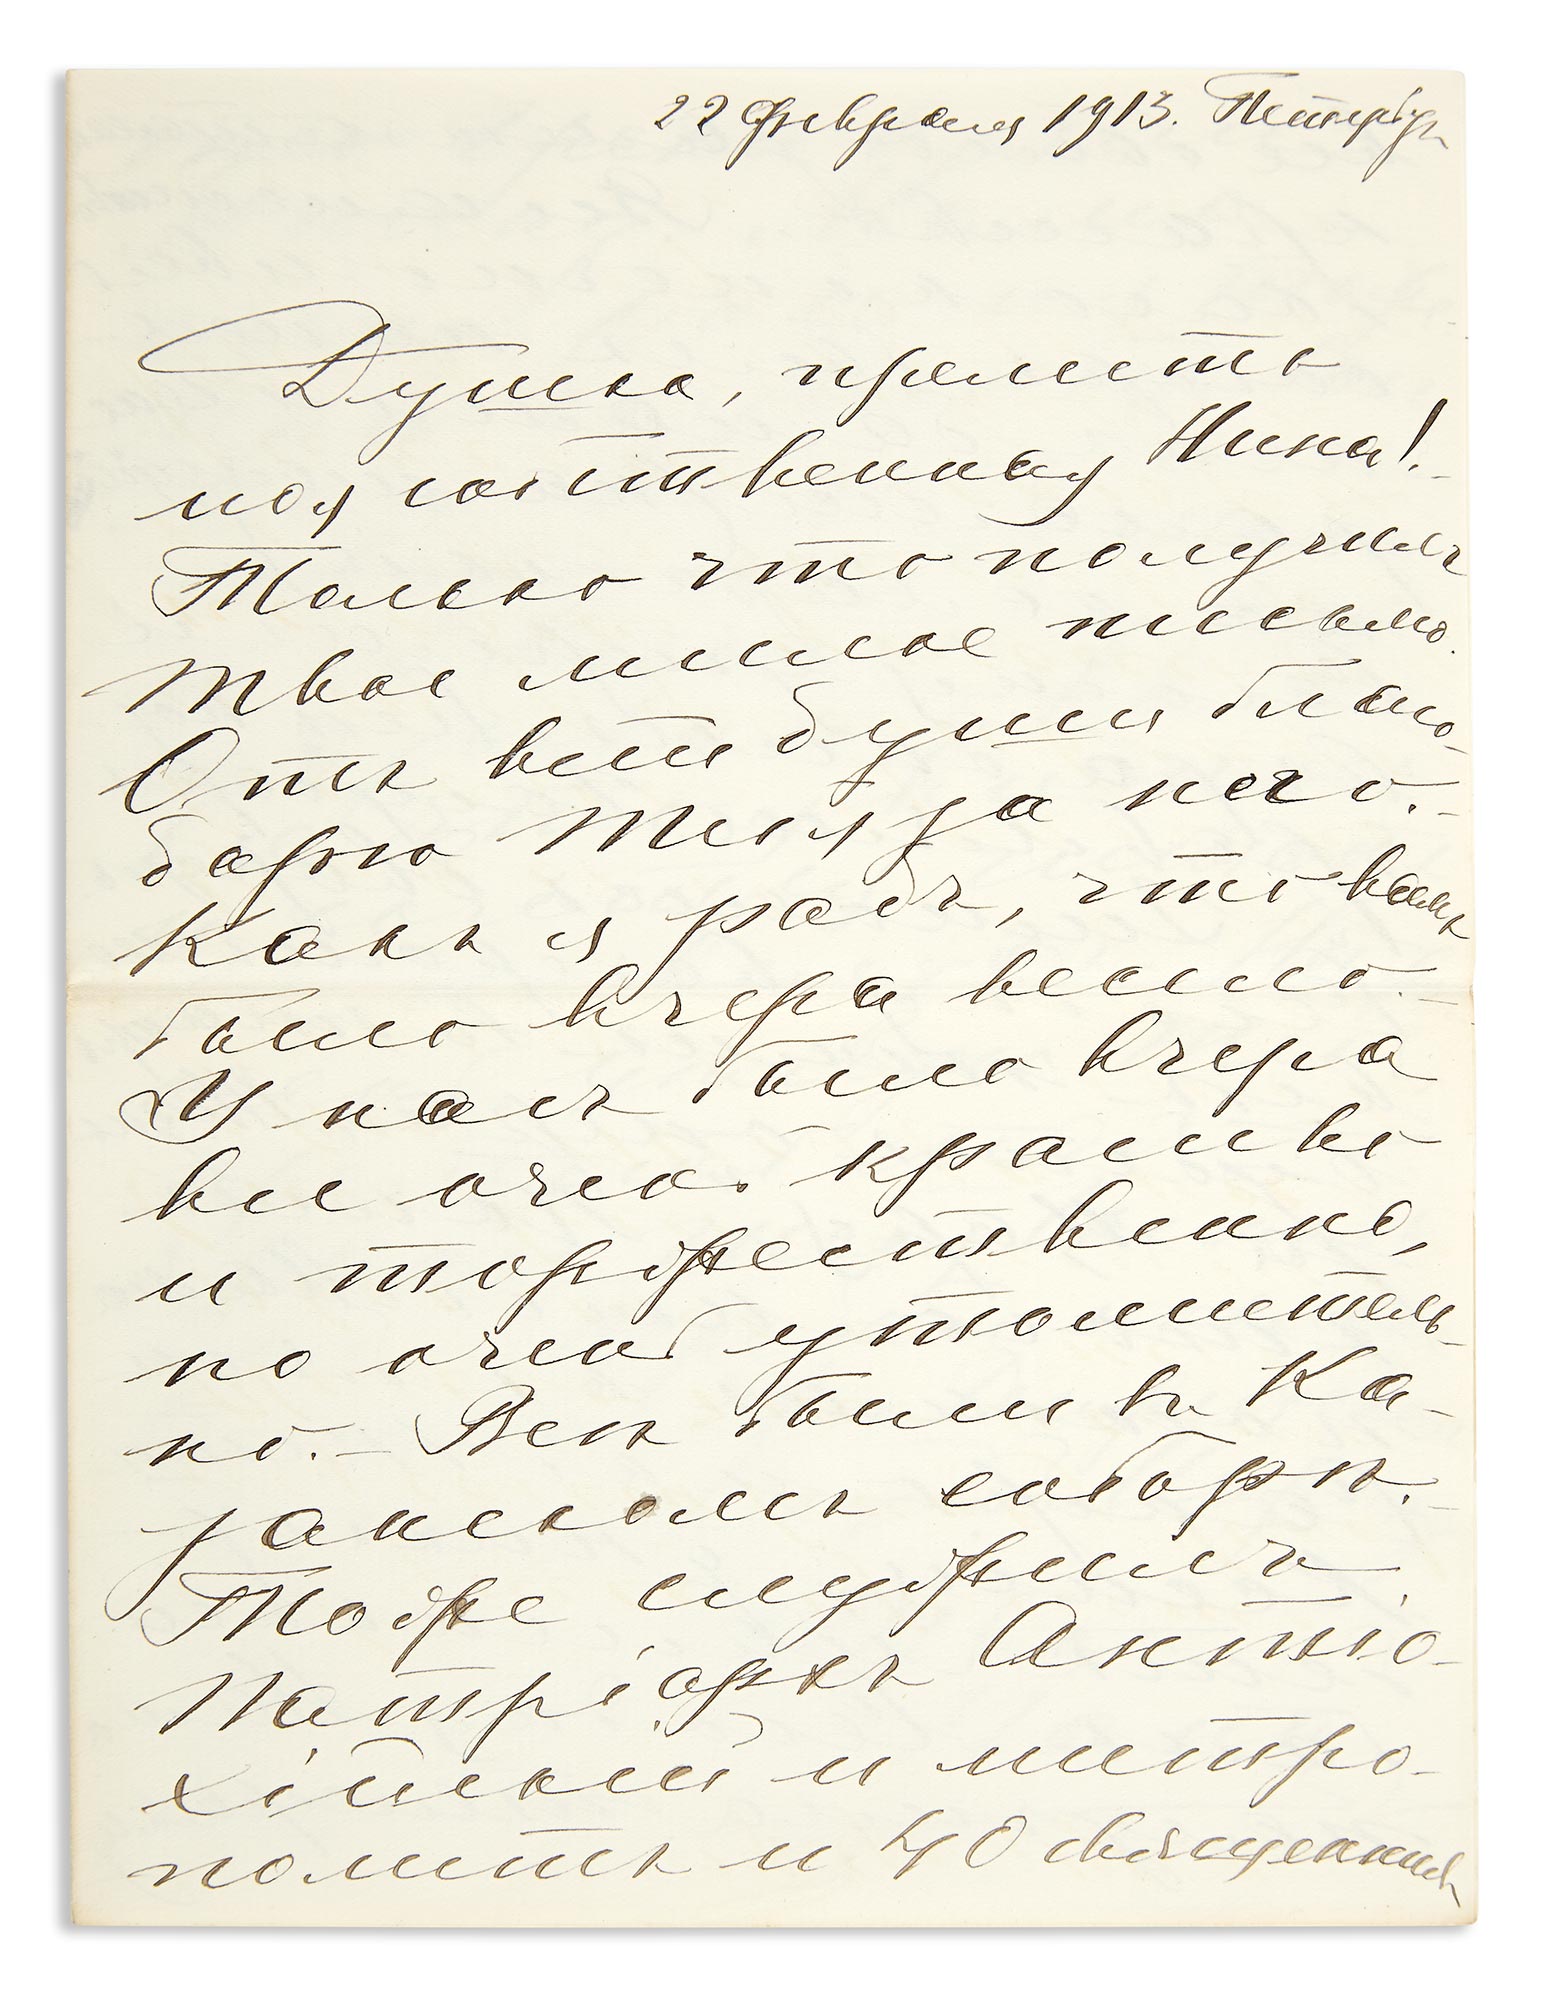 22 февраля 1913. Петербургъ
Душка, прелесть
моя собственная Нина!
Только что получилъ
Твое милое письмо.
Отъ всей души благо-
дарю Тебя за него. –
Какъ я радъ, что вамъ
было вчера весело. –
У насъ было вчера
все очень красиво
и торжественно,
но очень утомитель-
но. – Всѣ были въ Ка-
занскомъ соборѣ. –
Тоже служилъ
Патріархъ Антіо-
хійскій и митро-
политъ и 40 священниковъ